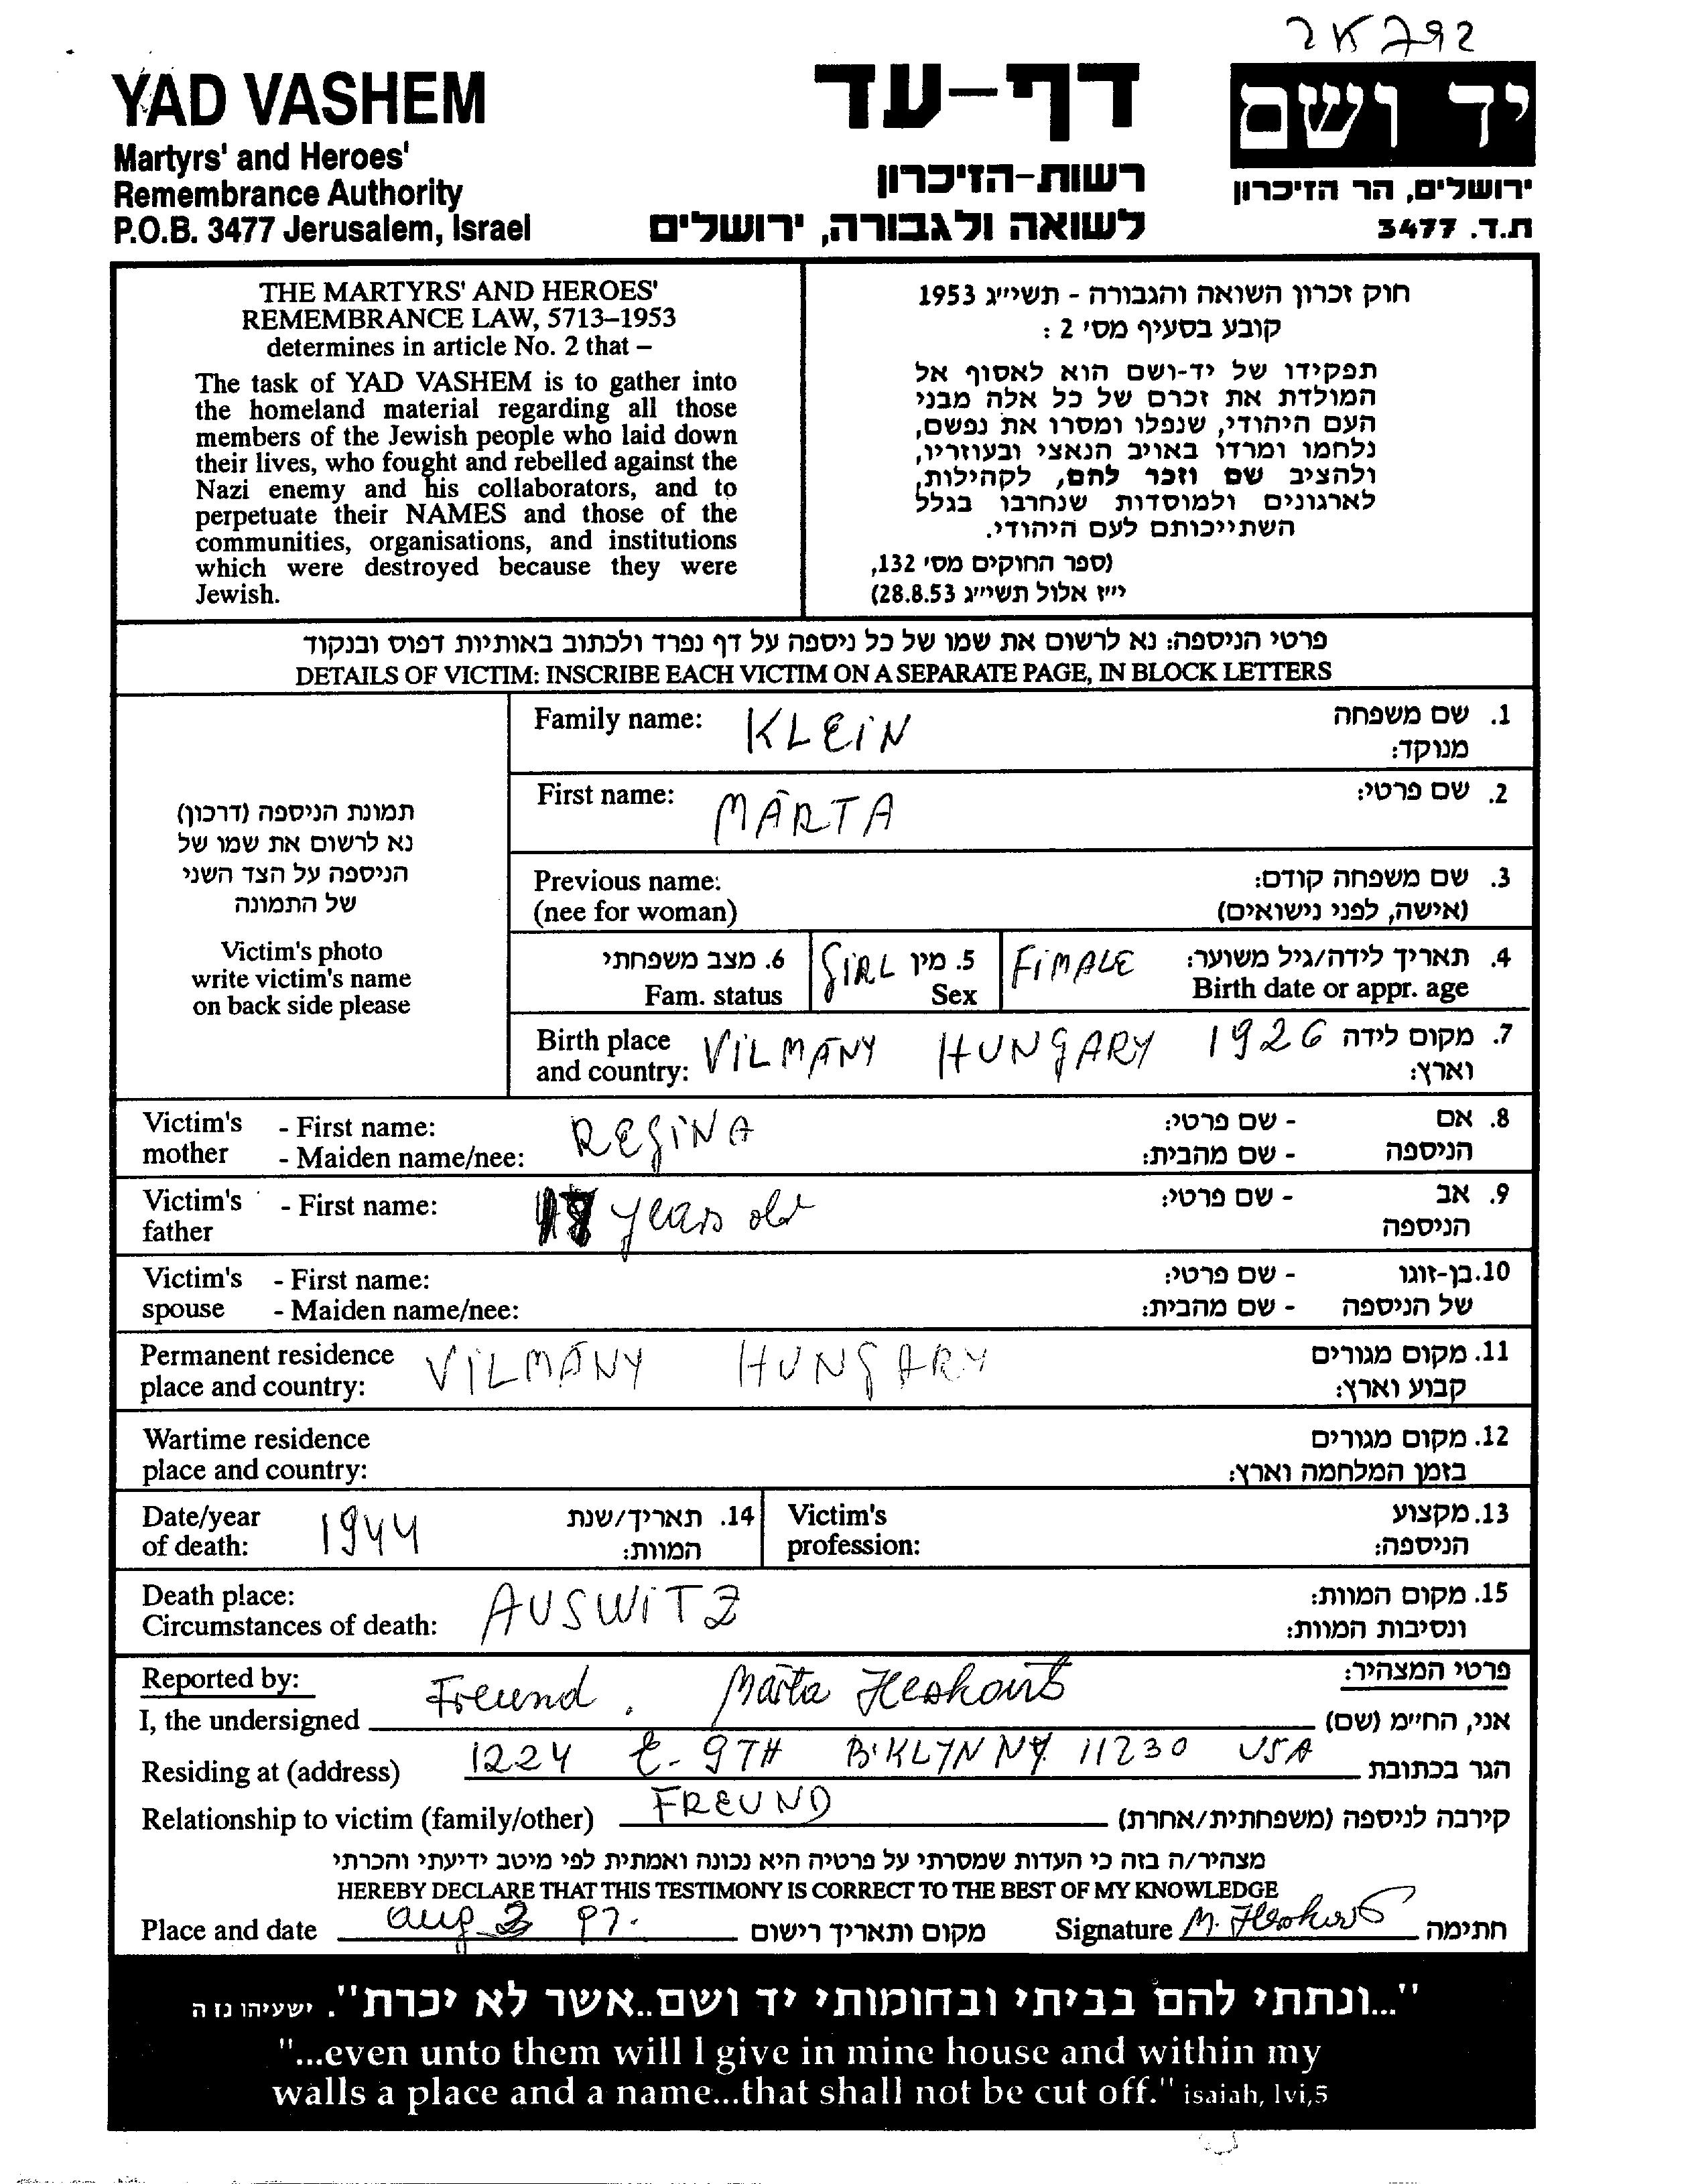 2K792
YAD VASHEM
Martyrs' and Heroes'
Remembrance Authority
P.O.B. 3477 Jerusalem, Israel
דף-עד
רשות-הזיכרון
לשואה ולגבורה, ירושלים
יד ושם
ירושלים, הר הזיכרון
ת.ד. 3477
THE MARTYRS' AND HEROES'
REMEMBRANCE LAW, 5713–1953
determines in article No. 2 that –
The task of YAD VASHEM is to gather into
the homeland material regarding all those
members of the Jewish people who laid down
their lives, who fought and rebelled against the
Nazi enemy and his collaborators, and to
perpetuate their NAMES and those of the
communities, organisations, and institutions
which were destroyed because they were
Jewish.
חוק זכרון השואה והגבורה - תשי״ג 1953
קובע בסעיף מס׳ 2 :
תפקידו של יד-ושם הוא לאסוף אל
המולדת את זכרם של כל אלה מבני
העם היהודי, שנפלו ומסרו את נפשם,
נלחמו ומרדו באויב הנאצי ובעוזריו,
ולהציב שם וזכר להם, לקהילות,
לארגונים ולמוסדות שנחרבו בגלל
השתייכותם לעם היהודי.
(ספר החוקים מס׳ 132,
י״ז אלול תשי״ג 28.8.53)
פרטי הניספה: נא לרשום את שמו של כל ניספה על דף נפרד ולכתוב באותיות דפוס ובנקוד
DETAILS OF VICTIM: INSCRIBE EACH VICTIM ON A SEPARATE PAGE, IN BLOCK LETTERS
תמונת הניספה (דרכון)
נא לרשום את שמו של
הניספה על הצד השני
של התמונה
Victim's photo
write victim's name
on back side please
Family name: KLEiN 1. שם משפחה
מנוקד:
First name: MÁRTA 2. שם פרטי:
Previous name: 3. שם משפחה קודם:
(nee for woman) (אישה, לפני נישואים)
6. מצב משפחתי GiRL 5. מין FiMALE 4. תאריך לידה/גיל משוער:
Fam. status Sex Birth date or appr. age
Birth place VILMÁNY HUNGARY 1926 7. מקום לידה
and country: וארץ:
Victim's - First name: REGiNA - שם פרטי: 8. אם
mother - Maiden name/nee: - שם מהבית: הניספה
Victim's - First name: 18 years old - שם פרטי: 9. אב
father הניספה
Victim's - First name: - שם פרטי: 10. בן-זוגו
spouse - Maiden name/nee: - שם מהבית: של הניספה
Permanent residence VILMÁNY HUNGARY 11. מקום מגורים
place and country: קבוע וארץ:
Wartime residence 12. מקום מגורים
place and country: בזמן המלחמה וארץ:
Date/year 1944 14. תאריך/שנת Victim's 13. מקצוע
of death: המוות: profession: הניספה:
Death place: AUSWiTZ 15. מקום המוות:
Circumstances of death: ונסיבות המוות:
Reported by: פרטי המצהיר:
I, the undersigned Freund. Márta אני, החי״מ (שם)
Residing at (address) 1224 E. 9TH B'KLYN NY. 11230 USA הגר בכתובת
Relationship to victim (family/other) FREUND קירבה לניספה (משפחתית/אחרת)
מצהיר/ה בזה כי העדות שמסרתי על פרטיה היא נכונה ואמתית לפי מיטב ידיעתי והכרתי
HEREBY DECLARE THAT THIS TESTIMONY IS CORRECT TO THE BEST OF MY KNOWLEDGE
Place and date aug 3 97. מקום ותאריך רישום Signature M. חתימה
"...ונתתי להם בביתי ובחומותי יד ושם..אשר לא יכרת". ישעיהו נז ה
"...even unto them will I give in mine house and within my
walls a place and a name...that shall not be cut off." isaiah, lvi,5